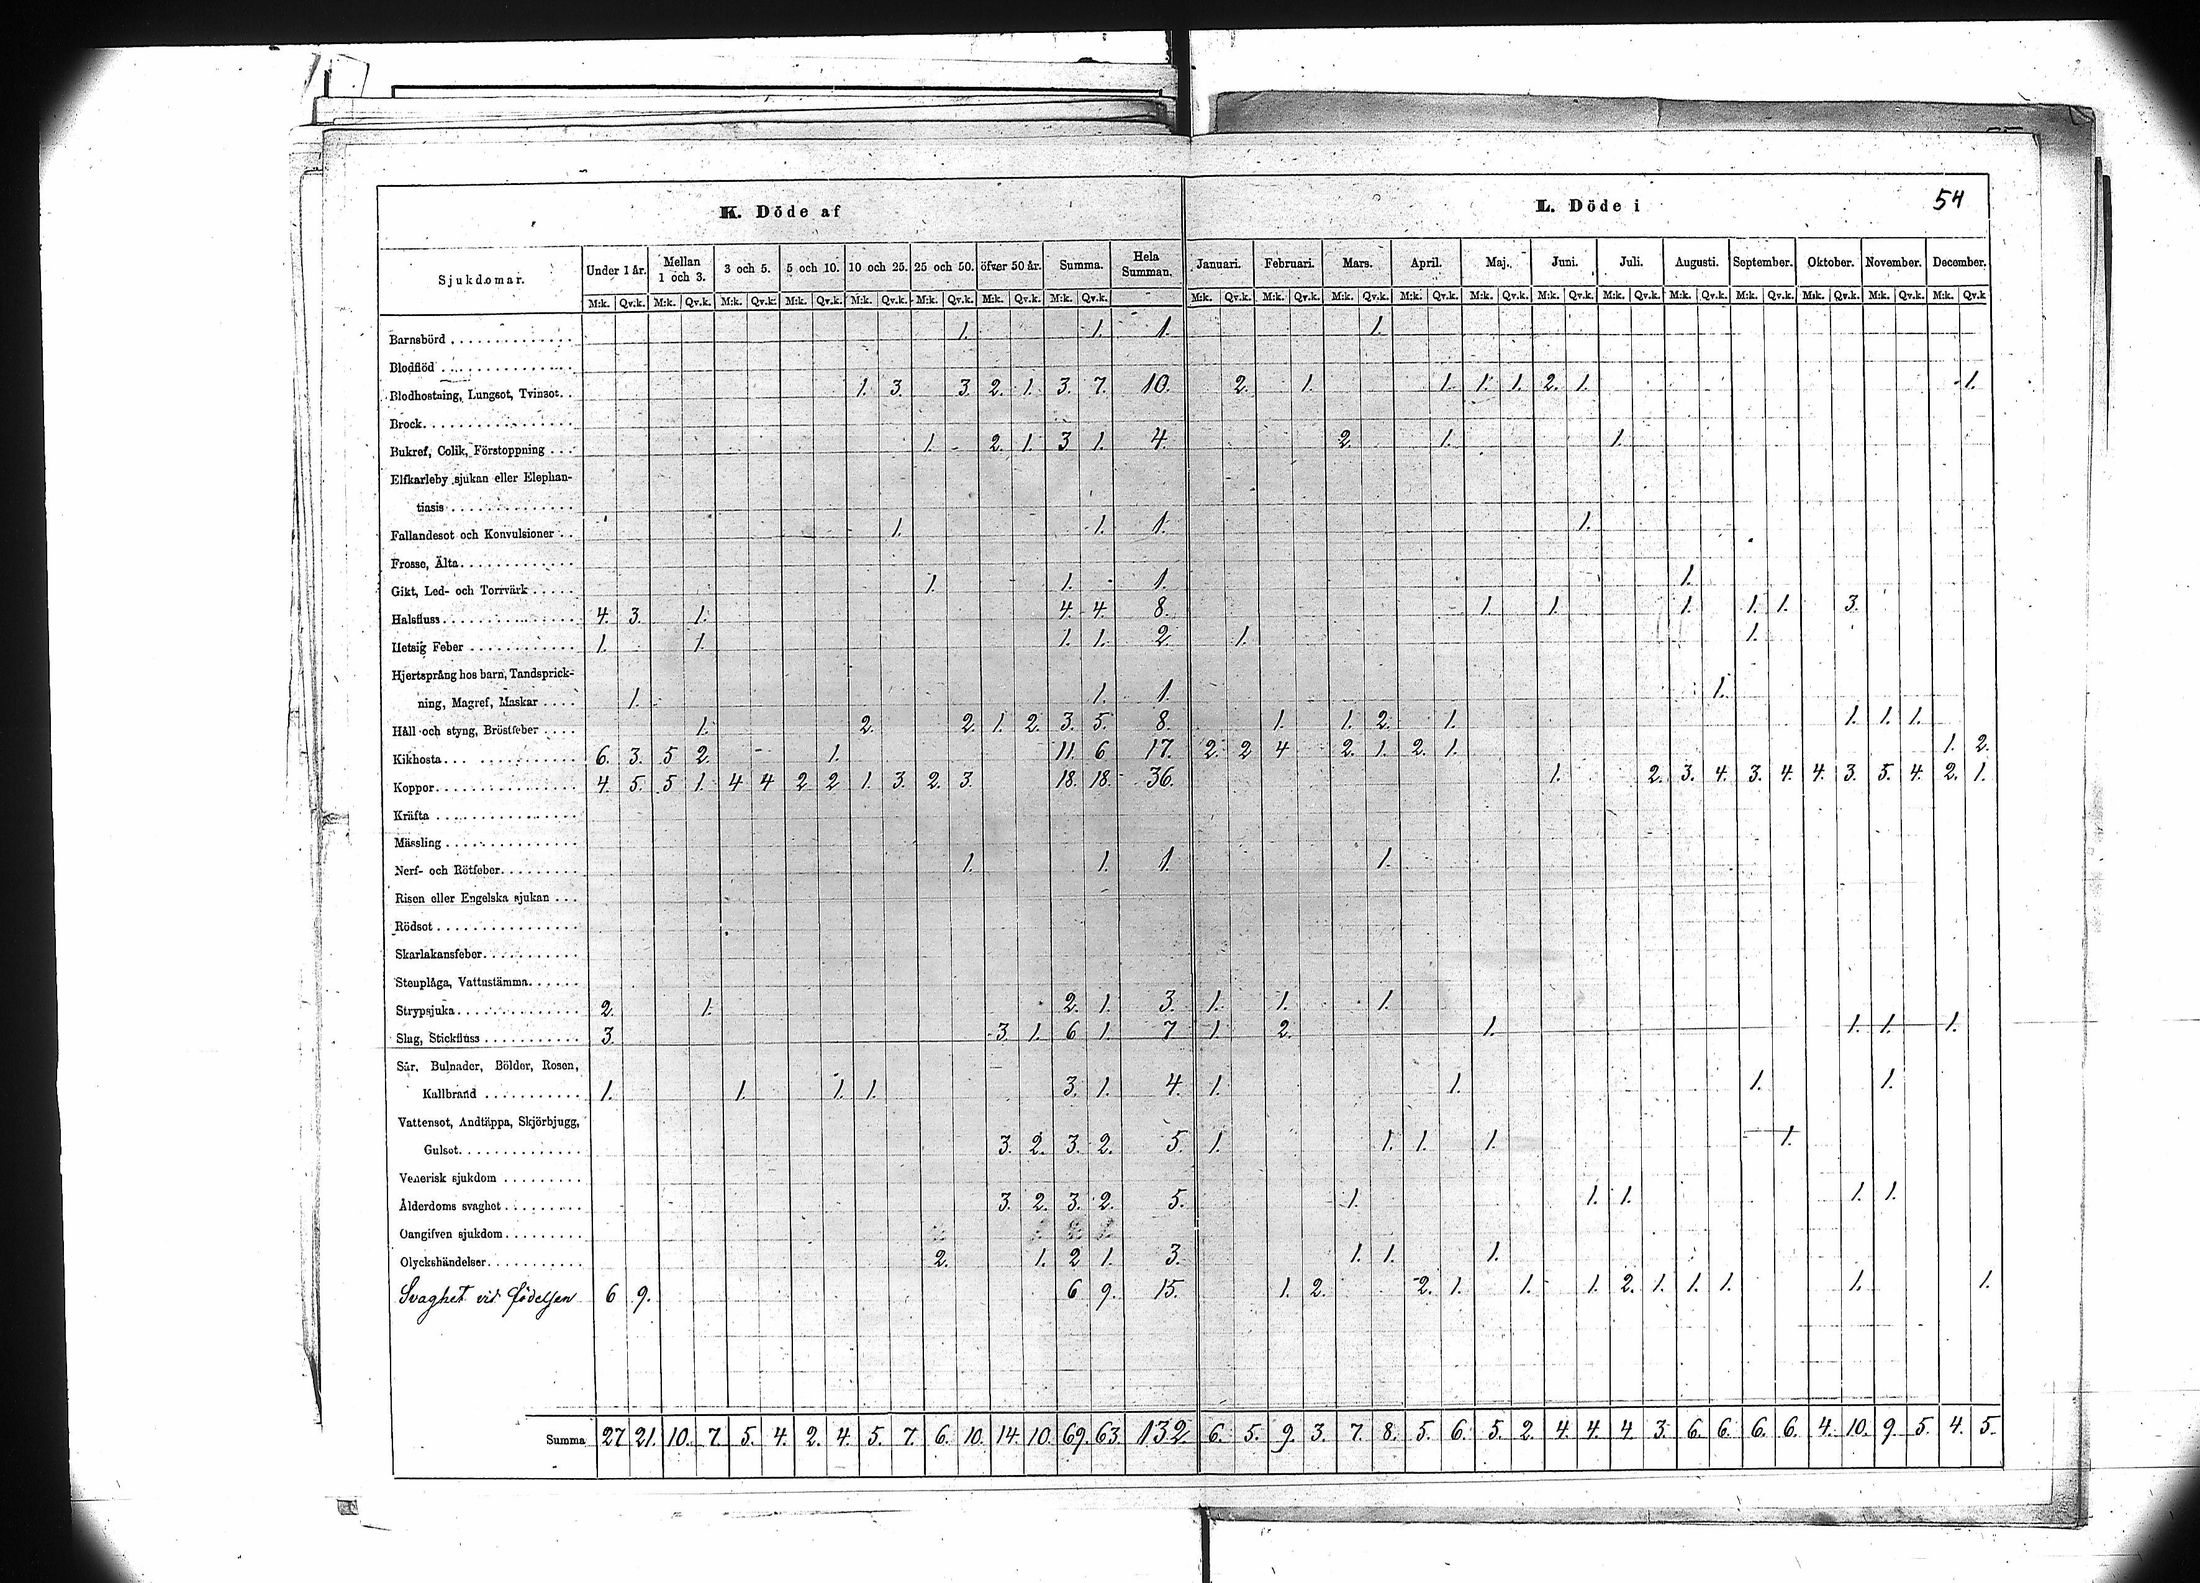 54
K. Döde af L. Döde i
Sjukdomar. Under 1 år. Mellan 1 och 3. 3 och 5. 5 och 10. 10 och 25. 25 och 50. öfver 50 år. Summa. Hela Summan. Januari. Februari. Mars. April. Maj. Juni. Juli. Augusti. September. Oktober. November. December.
M:k. Qv.k. M:k. Qv.k. M:k. Qv.k. M:k. Qv.k. M:k. Qv.k. M:k. Qv.k. M:k. Qv.k. M:k. Qv.k. M:k. Qv.k. M:k. Qv.k. M:k. Qv.k. M:k. Qv.k. M:k. Qv.k. M:k. Qv.k. M:k. Qv.k. M:k. Qv.k. M:k. Qv.k. M:k. Qv.k. M:k. Qv.k. M:k. Qv.k
Barnsbörd 1. 1. 1. 1.
Blodflöd
Blodhostning, Lungsot, Tvinsot. 1. 3. 3. 2. 1. 3. 7. 10. 2. 1. 1. 1. 1. 2. 1. 1.
Brock
Bukref, Colik, Förstoppning 1. 2. 1. 3 1. 4. 2. 1. 1.
Elfkarleby sjukan eller Elephan-
tiasis
Fallandesot och Konvulsioner 1. 1. 1. 1.
Frosse, Älta
Gikt, Led- och Torrvärk 1. 1. 1. 1.
Halsfluss 4. 3. 1. 4. 4. 8. 1. 1. 1. 1. 1. 3.
Hetsig Feber 1. 1. 1. 1. 2. 1. 1.
Hjertsprång hos barn, Tandsprick-
ning, Magref, Maskar 1. 1. 1. 1.
Håll och styng, Bröstfeber 1. 2. 2. 1. 2. 3. 5. 8. 1. 1. 2. 1. 1. 1. 1.
Kikhosta 6. 3. 5 2. 1. 11. 6 17. 2. 2 4 2. 1. 2. 1. 1. 2.
Koppor 4. 5. 5 1. 4 4 2 2 1. 3. 2. 3. 18. 18. 36. 1. 2. 3. 4. 3. 4. 4. 3. 5. 4. 2. 1.
Kräfta
Mässling
Nerf- och Rötfeber 1. 1. 1. 1.
Risen eller Engelska sjukan
Rödsot
Skarlakansfeber
Stenplåga, Vattustämma
Strypsjuka 2. 1. 2. 1. 3. 1. 1. 1.
Slag, Stickfluss 3. 3. 1. 6 1. 7 1. 2. 1. 1. 1. 1.
Sår, Bulnader, Bölder, Rosen,
Kallbrand 1. 1. 1. 1. 3. 1. 4. 1. 1. 1. 1.
Vattensot, Andtäppa, Skjörbjugg,
Gulsot 3. 2. 3. 2. 5. 1. 1. 1. 1. 1.
Venerisk sjukdom
Ålderdoms svaghet 3. 2. 3. 2. 5. 1. 1. 1. 1. 1.
Oangifven sjukdom
Olyckshändelser 2. 1. 2 1. 3. 1. 1. 1.
Svaghet vid födelsen 6 9. 6 9. 15. 1. 2. 2. 1. 1. 1. 2. 1. 1. 1. 1. 1.
Summa 27 21. 10. 7. 5. 4. 2. 4. 5. 7. 6. 10. 14. 10. 69. 63. 132. 6. 5. 9. 3. 7. 8. 5. 6. 5. 2. 4. 4. 4. 3. 6. 6. 6. 6. 4. 10. 9. 5. 4. 5.